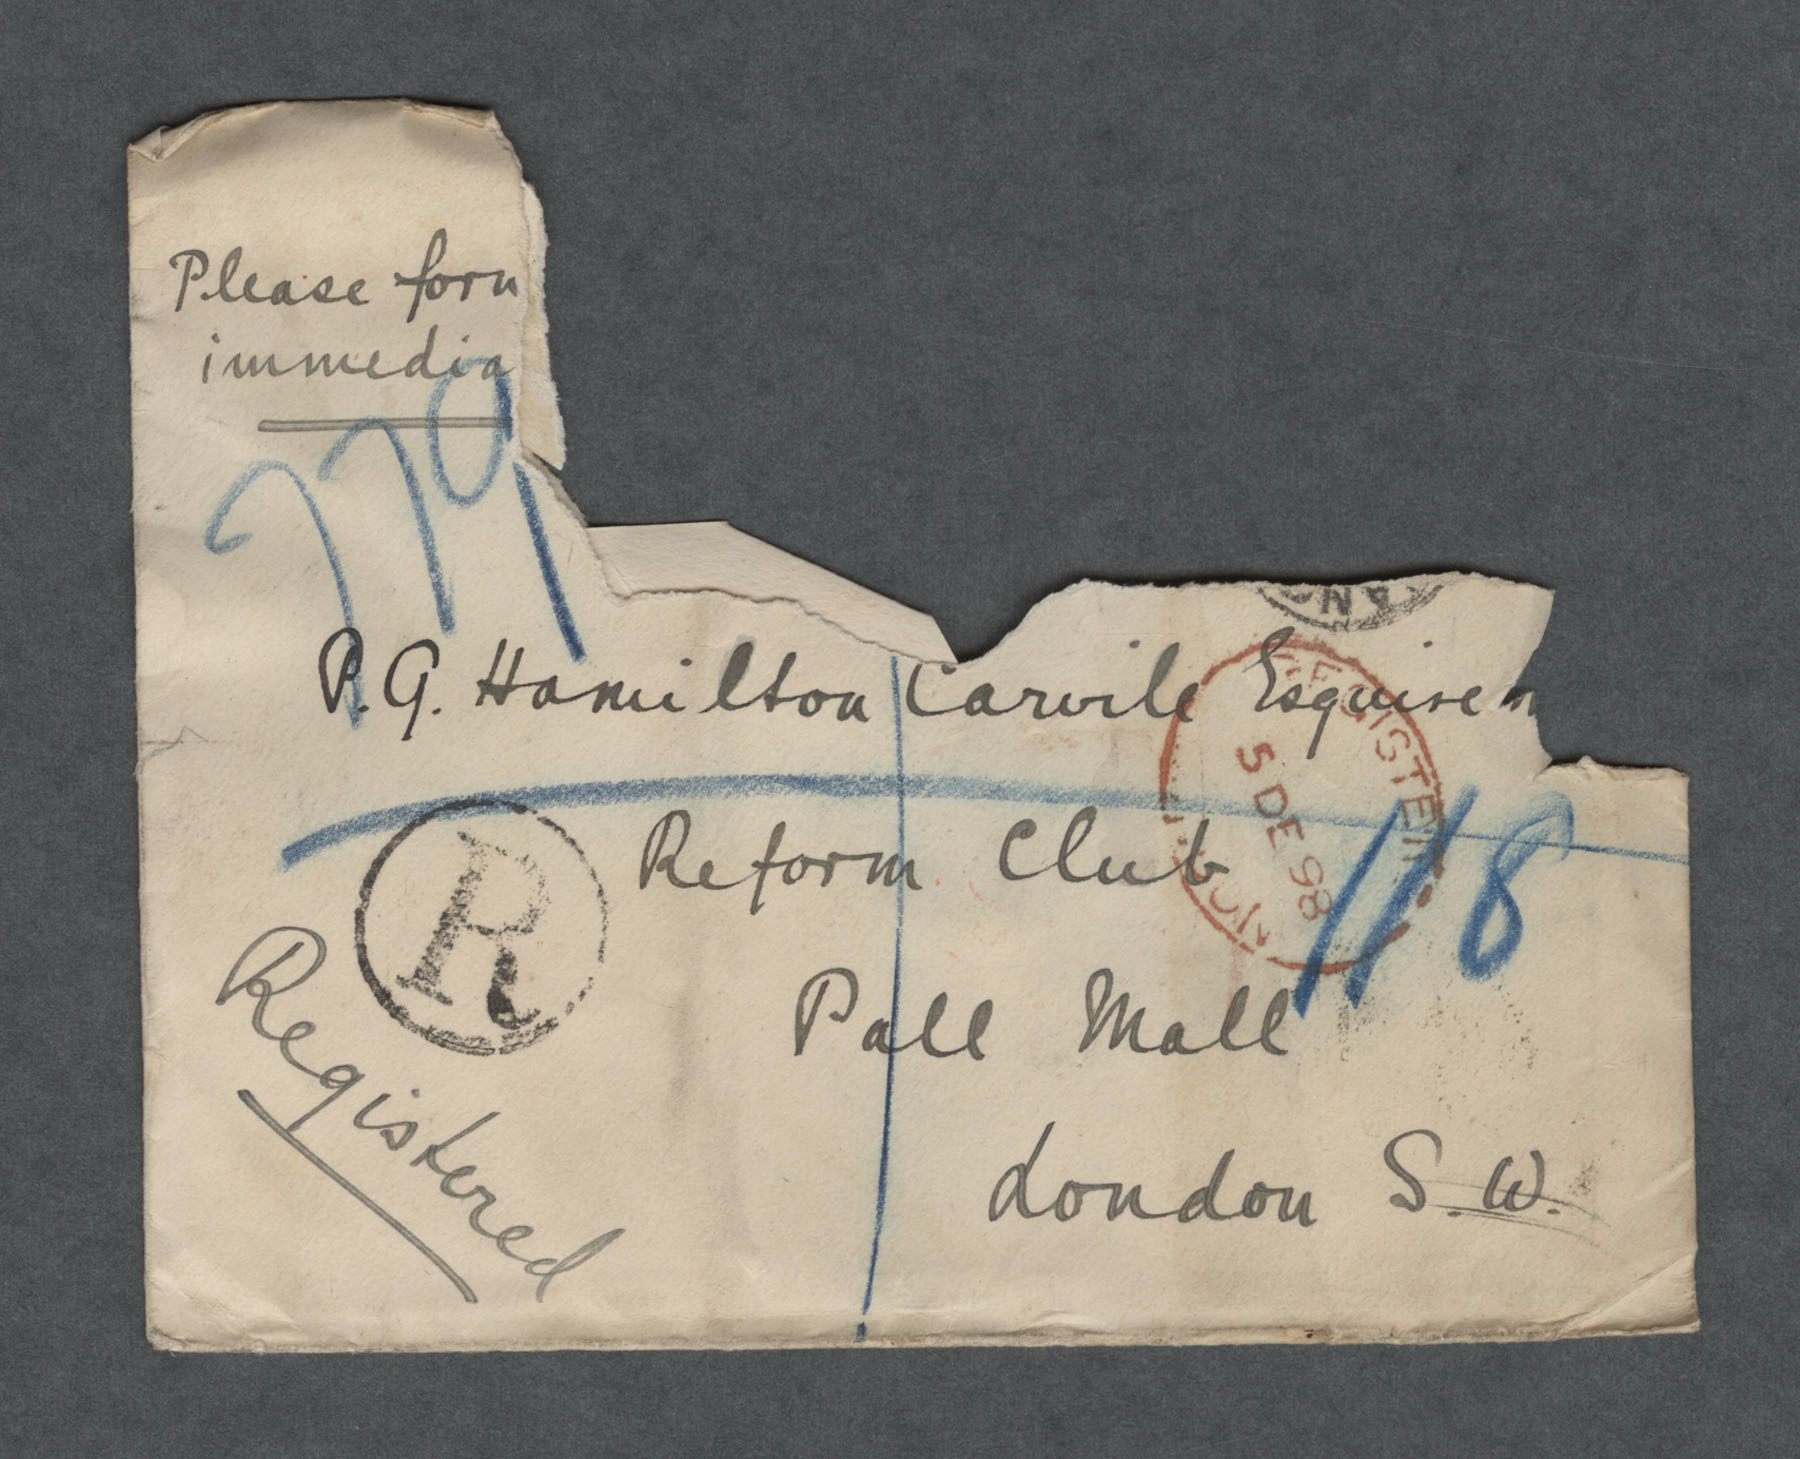 Please forw
immedia
779
P.G. Hamilton Carvile Esquire
Reform Club
Pall Mall
London S.W.
Registered
R
REGISTER
5 DE 98
118